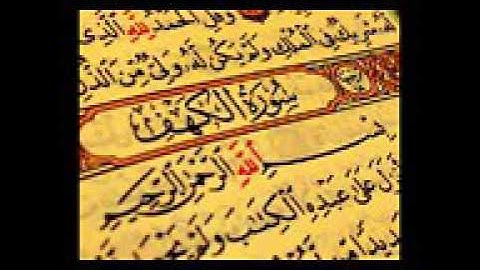 وقل الحمد لله الذي
له شريك في الملك ولم يكن له ولي من الذل
سورة الكهف
بسم الله الرحمن الرحيم
نزل على عبده الكتاب ولم يجعل